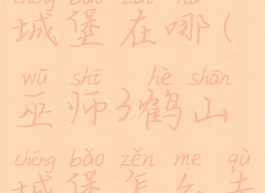 chéng bǎo zài nǎ
城堡在哪(
wū shī hè shān
巫师3鹤山
chéng bǎo zěn me qù
城堡怎么去